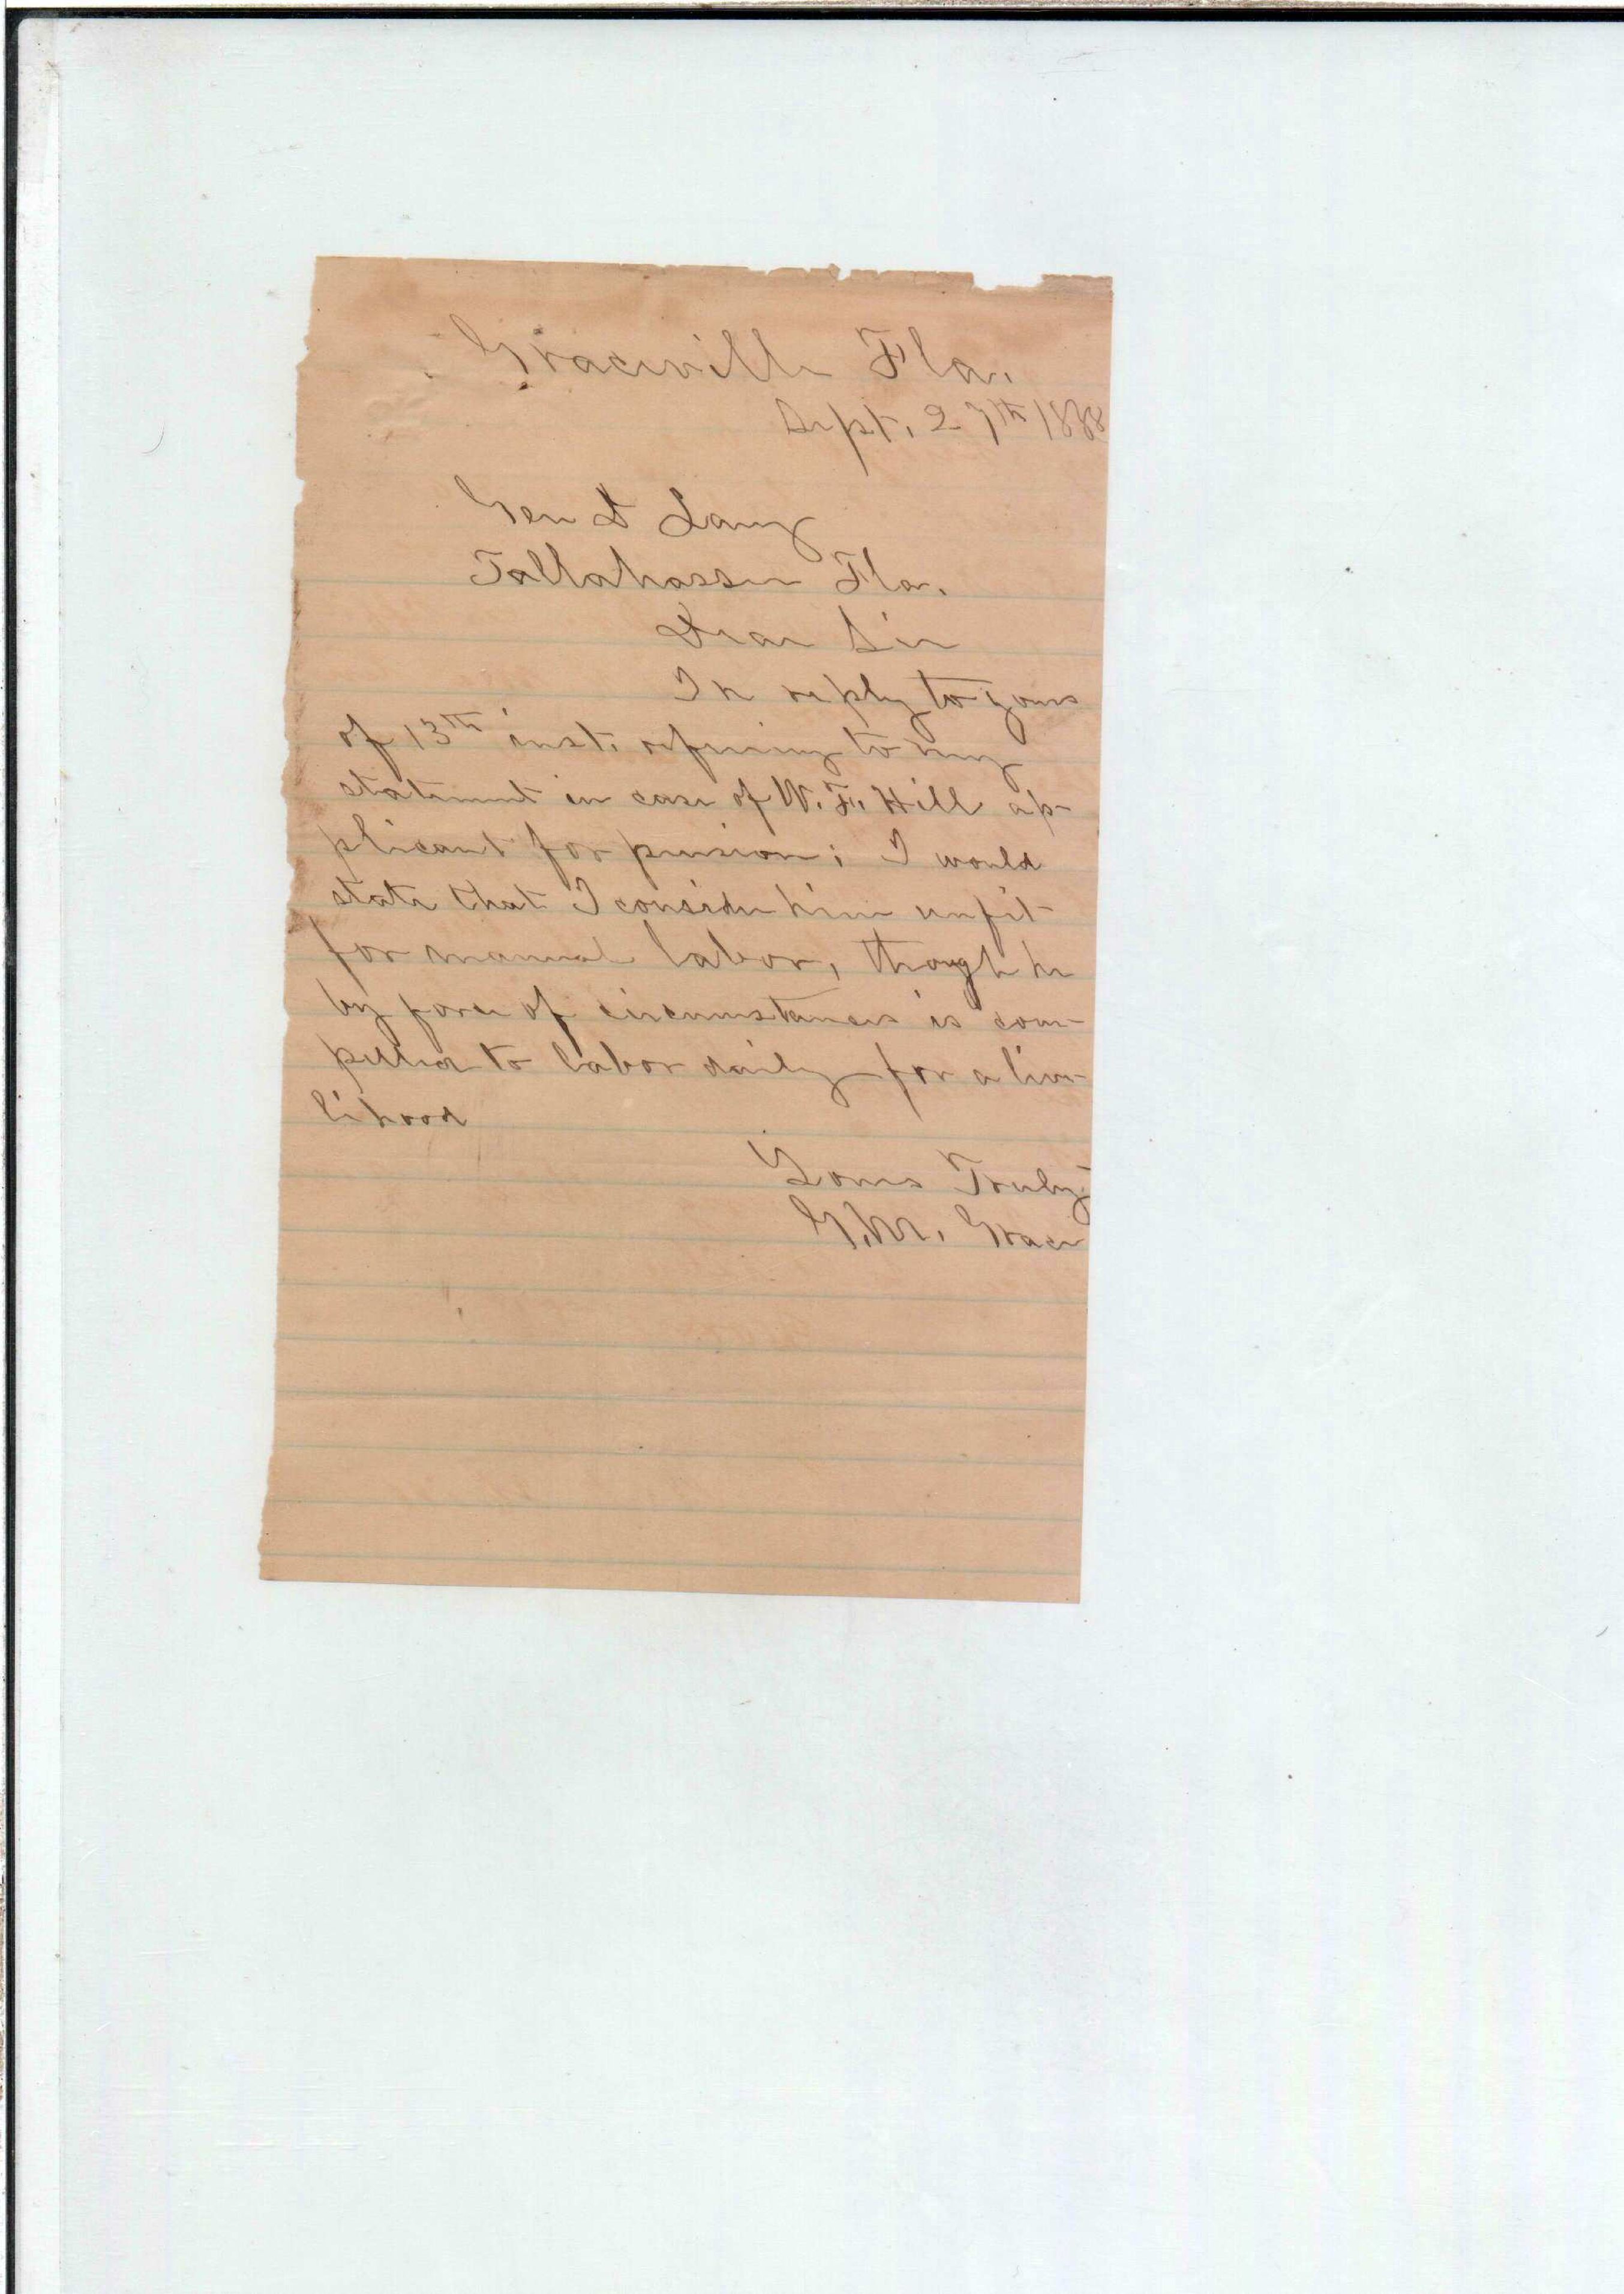 Graceville Fla.
Sept. 27th 1888
Gen D Lang
Tallahassee Fla.
Dear Sir
In reply to yours
of 13th inst. refering to my
statement in case of W. F. Hill ap-
plicant for pension; I would
state that I consider him unfit
for manual labor, though he
by force of circumstances is com-
pelled to labor daily for a live-
lihood
Yours Truly
G. M. Grace